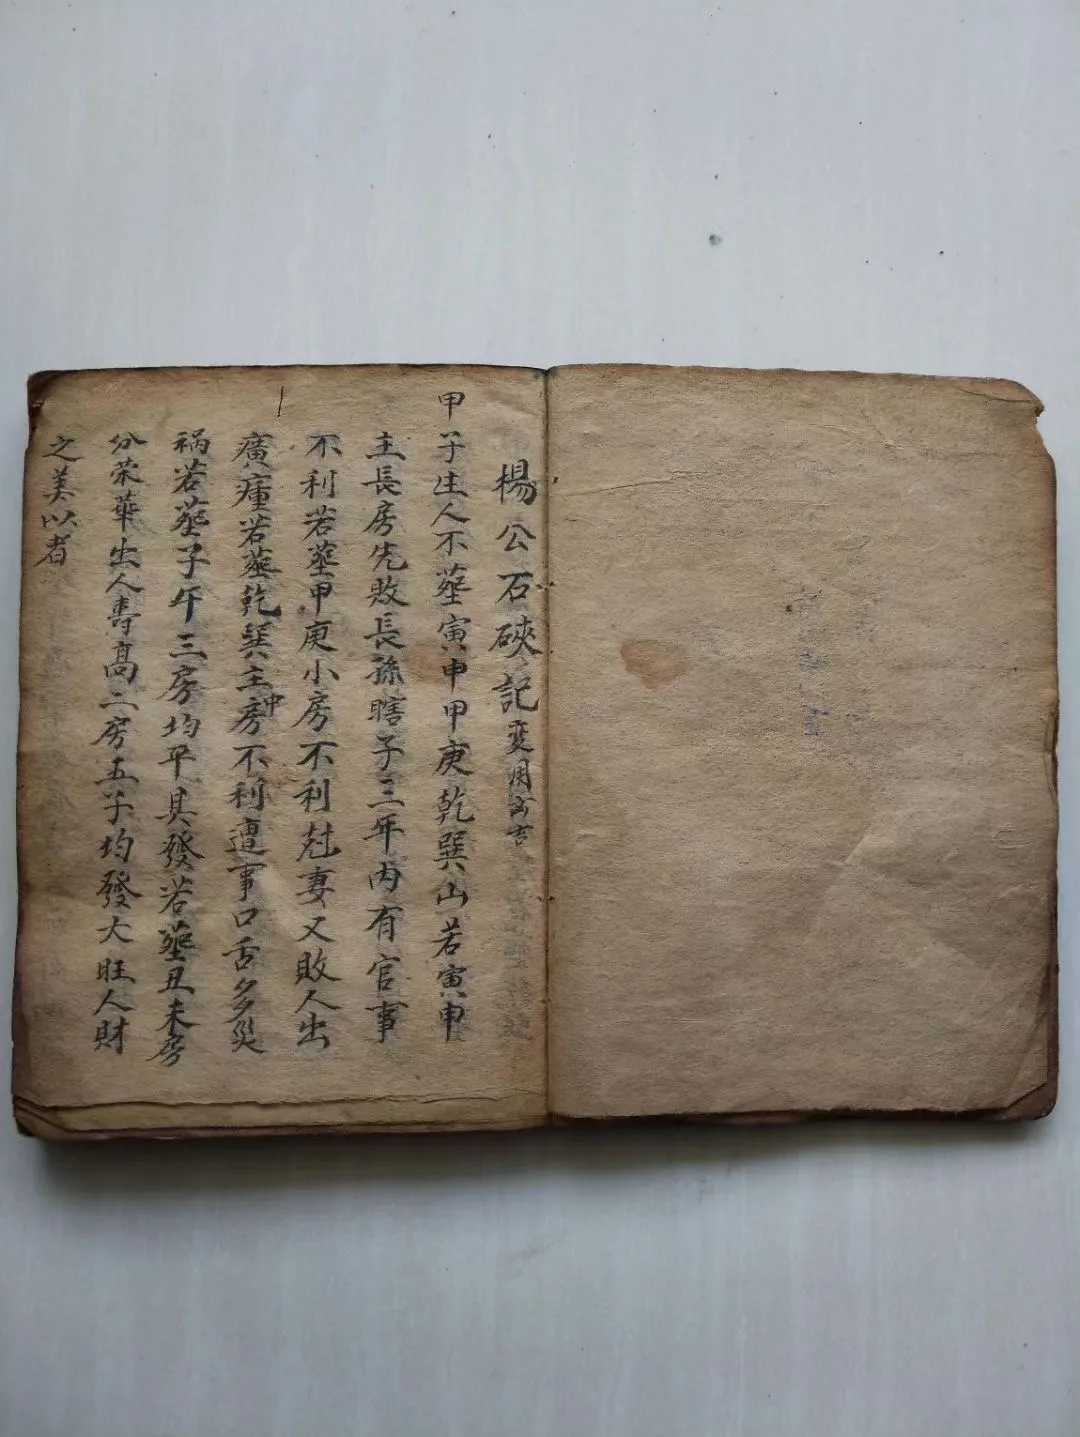 楊公石硤記変用
甲子生人不葬寅申甲庚乾巽山若寅申
主長房先敗長孫瞎子三年內有官事
不利若葬甲庚小房不利尅妻又敗人出
廣瘇若葬乾巽主中房不利遭事口舌多災
祸若葬子午三房均平具發若葬丑未房
分荣華出人壽高二房五子均發大旺人財
之美以者